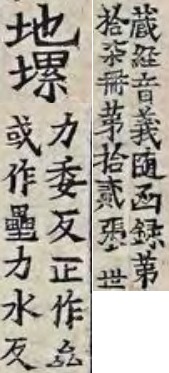 藏經音義隨函録第
拾柒冊第拾貳張 世
地㙼
力委反正作厽
或作壘力水反